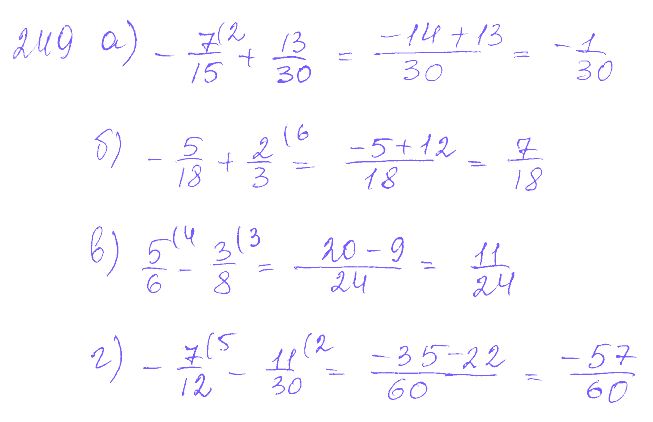 249 а) -7/15(2 + 13/30 = -14+13/30 = -1/30
б) -5/18 + 2/3(6 = -5+12/18 = 7/18
в) 5/6(4 - 3/8(3 = 20-9/24 = 11/24
г) -7/12(5 - 11/30(2 = -35-22/60 = -57/60